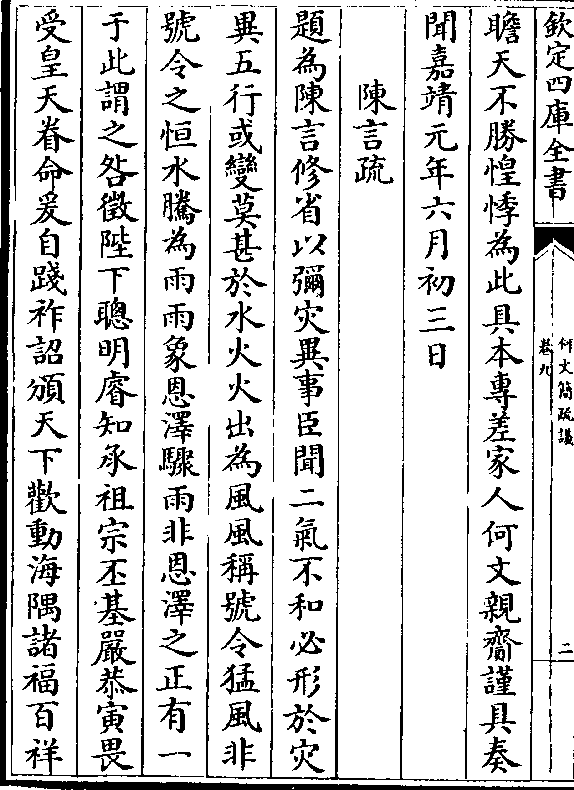 欽定四庫全書
何文簡疏議
卷九
二
瞻天不勝惶悸為此具本專差家人何文親齎謹具奏
聞嘉靖元年六月初三日
陳言疏
題為陳言修省以彌灾異事臣聞二氣不和必形於灾
異五行或變莫甚於水火火出為風風稱號令猛風非
號令之恒水騰為雨雨象恩澤驟雨非恩澤之正有一
于此謂之咎徵陛下聰明睿知承祖宗丕基嚴恭寅畏
受皇天眷命爰自踐祚詔頒天下歡動海隅諸福百祥